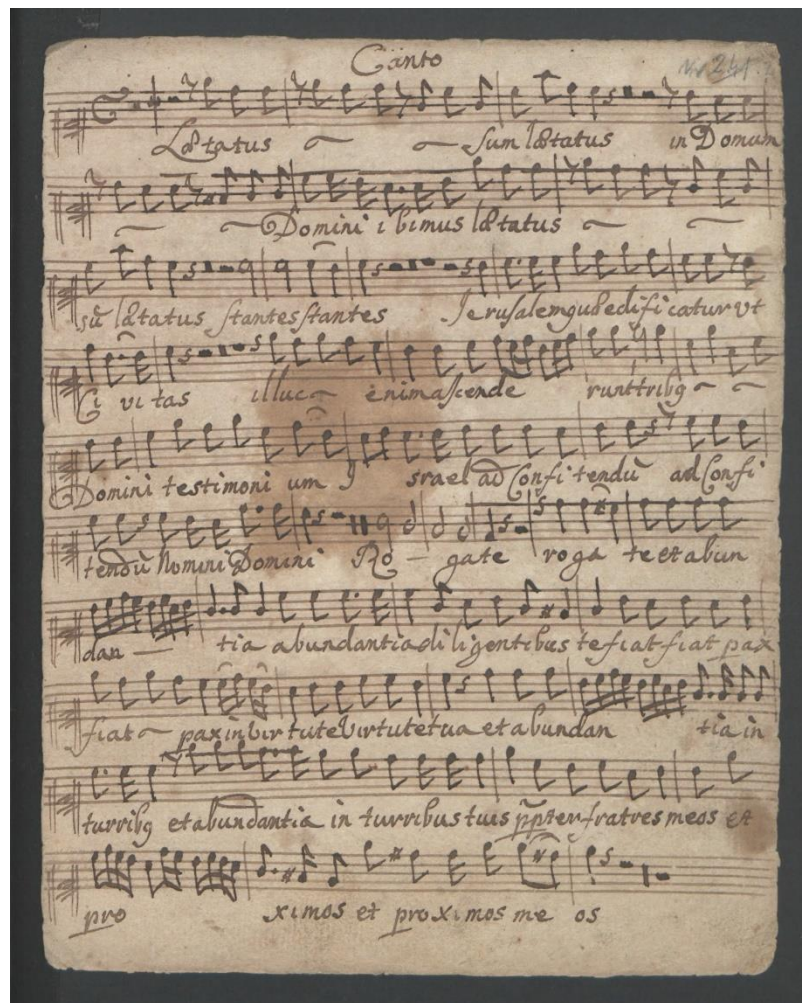 Canto
Nr 241
Lætatus sum lætatus in Domum
Domini ibimus lætatus
sū lætatus stantes stantes Jerusalem quæ edificatur ut
Civitas illuc enim ascende runt tribq
Domini testimonium Ysrael ad Confitendū ad Confi
tendū Nomini Domini Ro - gate rogate et abun
dan - tia abundantia diligentibus te fiat fiat pax
fiat pax in virtute virtute tua et abundan tia in
turribq et abundantia in turribus tuis ppter fratres meos et
pro ximos et proximos me os